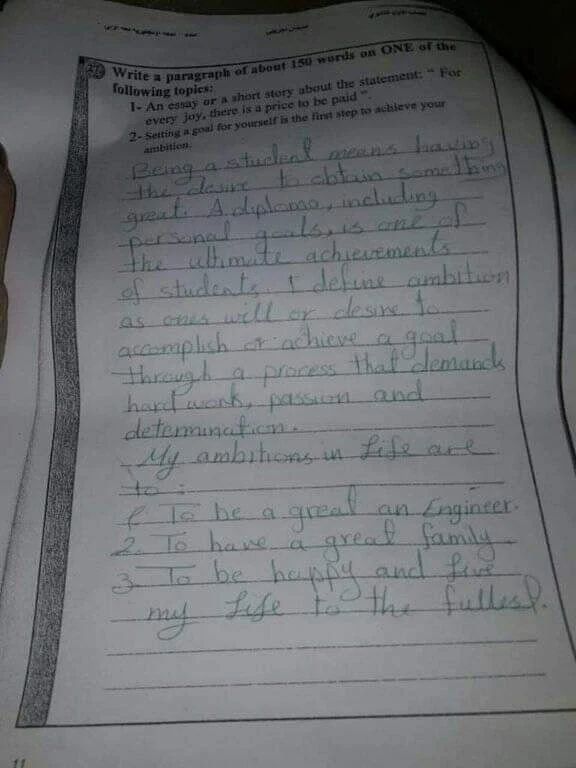 27 Write a paragraph of about 150 words on ONE of the
following topics:
1- An essay or a short story about the statement: " For
every joy, there is a price to be paid ".
2- Setting a goal for yourself is the first step to achieve your
ambition.
Being a student means having
the desire to obtain something
great. A diploma, including
personal goals, is one of
the ultimate achievements
of students. I define ambition
as ones will or desire to
accomplish or achieve a goal
through a process that demands
hard work, passion and
determination.
My ambitions in Life are
to:
1. To be a great an Engineer.
2. To have a great family
3 To be happy and Live
my Life to the fullest.
11